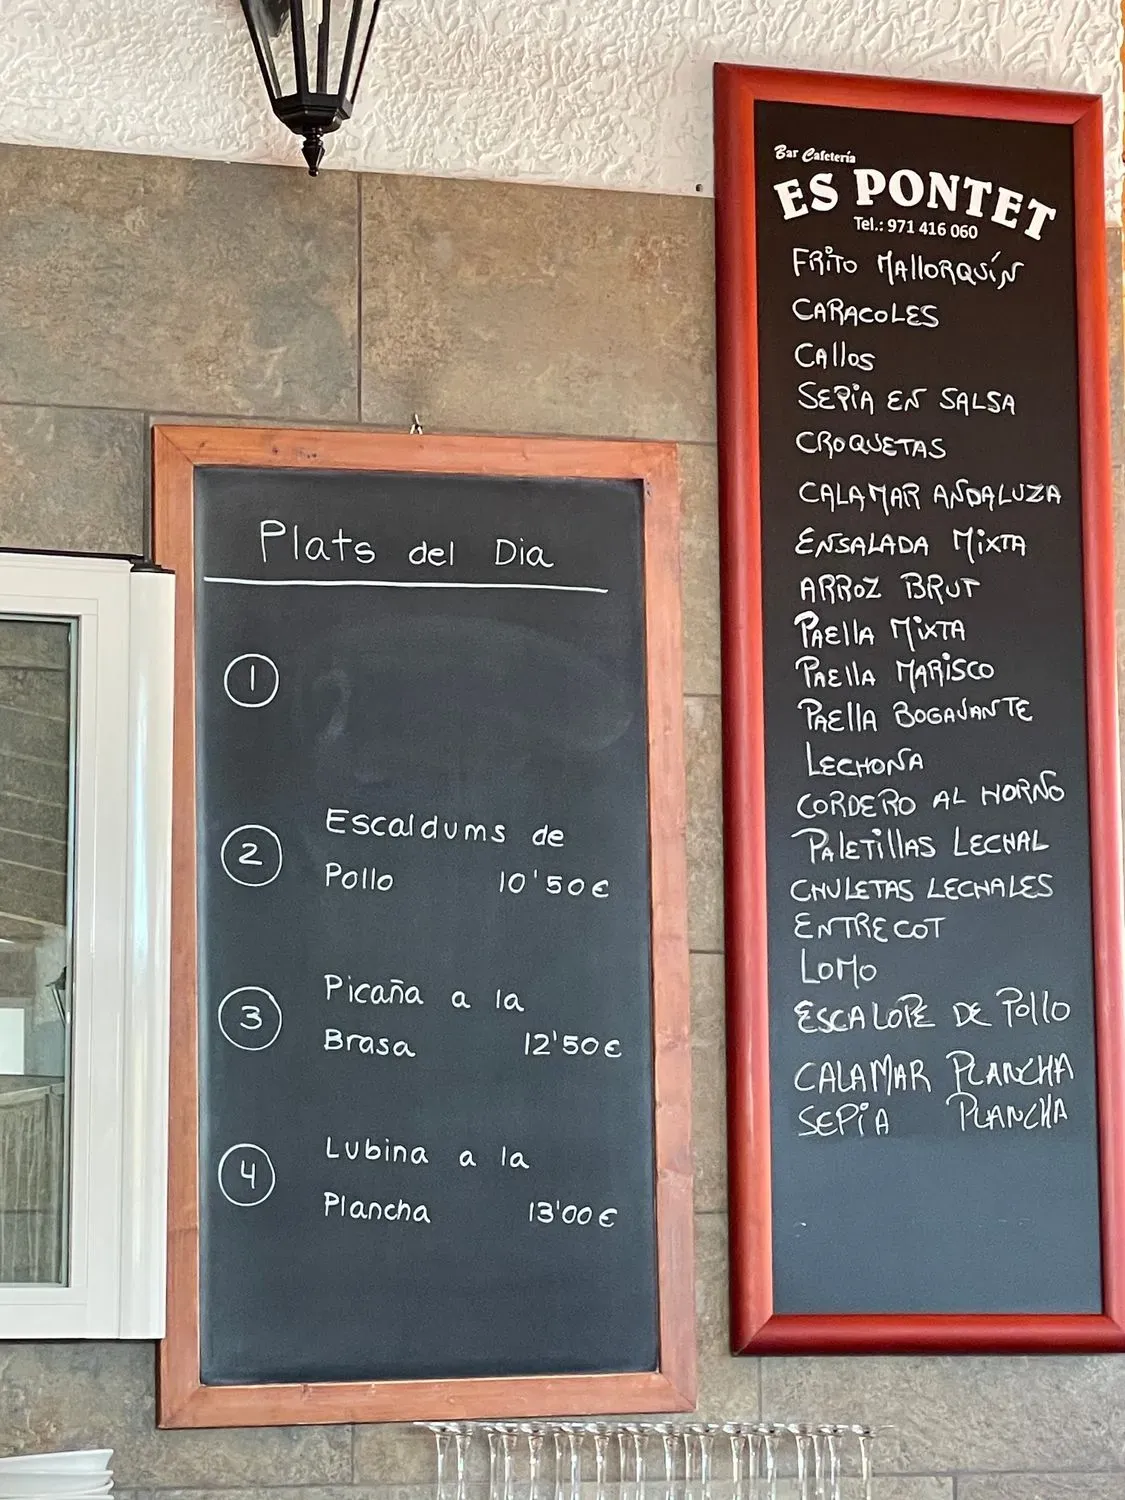 Plats del Dia
1
2 Escaldums de
Pollo 10'50€
3 Picaña a la
Brasa 12'50€
4 Lubina a la
Plancha 13'00€
Bar Cafetería
ES PONTET
Tel.: 971 416 060
FRITO MALLORQUÍN
CARACOLES
CALLOS
SEPIA EN SALSA
CROQUETAS
CALAMAR ANDALUZA
ENSALADA MIXTA
ARROZ BRUT
PAELLA MIXTA
PAELLA MARISCO
PAELLA BOGAVANTE
LECHONA
CORDERO AL HORNO
PALETILLAS LECHAL
CHULETAS LECHALES
ENTRECOT
LOMO
ESCALOPE DE POLLO
CALAMAR PLANCHA
SEPIA PLANCHA